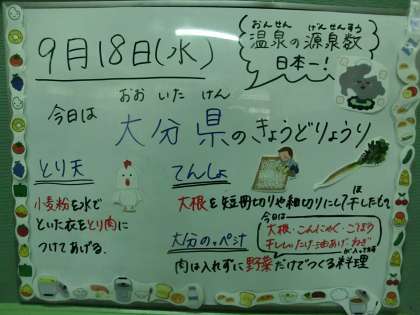 9月18日(水)
おんせん げんせんすう
温泉の源泉数
日本一!
おお いた けん
今日は
大分県のきょうどりょうり
とり天
小麦粉を水で
といた衣をとり肉に
つけてあげる。
てんしょ
大根を短冊切りや細切りにして干したもの
ほ
大分のっぺい汁
今日は
大根・こんにゃく・ごぼう
干ししいたけ・油あげ・ねぎ
が入ってます
肉は入れずに野菜だけでつくる料理